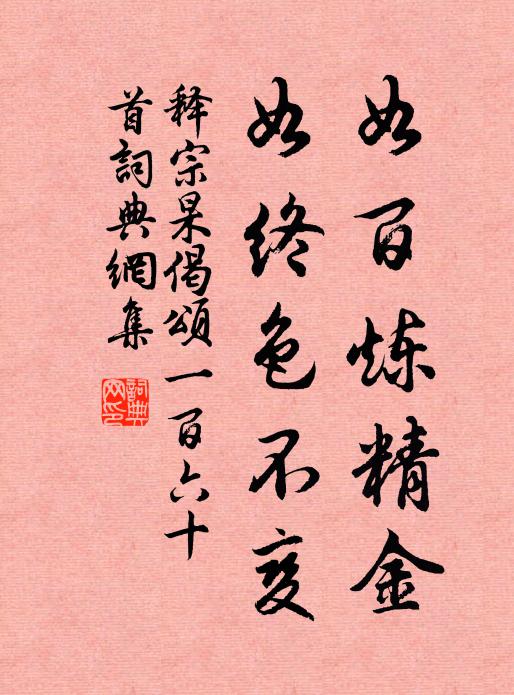 如百炼精金
如终色不变
释宗杲偈頌一百六十
首詞典網集
詞典
网印